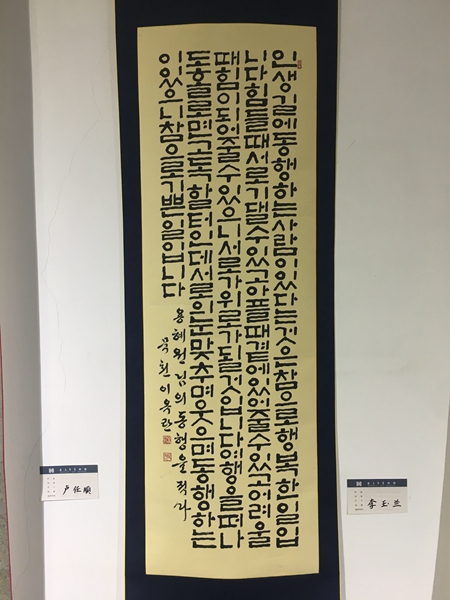 인생길에동행하는사람이있다는것은참으로행복한일입
니다힘들때서로기댈수있고아플때곁에있어줄수있고어려울
때힘이되어줄수있으니서로가위로가될것입니다여행을떠나
도홀로면고독할터인데서로의눈맞추며웃으며동행하는
이있으니참으로기쁜일입니다
용혜원님의동행을적다
이옥란
卢任顺
李玉兰